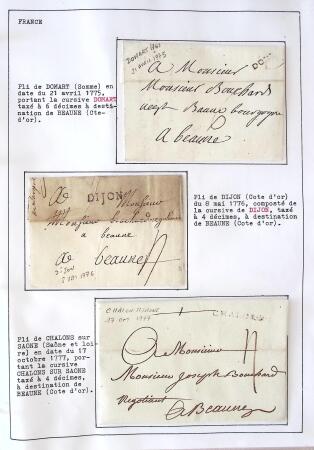 FRANCE
Pli de DOMART (Somme) en
date du 21 avril 1775,
portant la cursive DOMART
taxé à 6 décimes à desti-
nation de BEAUNE (Cte-
d'or).
DOMART
21 avril 1775
DOM
A Monsieur
Monsieur Bouchard
Baune bourgogne
a beaune
Pli de DIJON (Cote d'or)
du 8 mai 1776, composté de
la cursive de DIJON, taxé
à 4 décimes, à destination
de BEAUNE (Cote d'or).
DIJON
A Monsieur
Monsieur
a beaune
beaune
DIJON
MAI 1776
Pli de CHALONS sur
SAONE (Saône et loi-
re) en date du 17
octobre 1777, por-
tant la cursive
CHALONS SUR SAONE
taxé à 4 décimes,
à destination de
BEAUNE (Cote d'or).
CHALON S/SAONE
17 Oct 1777
CHALON S
A Monsieur
Monsieur Joseph Bouchard
Negotiant
A Beaune